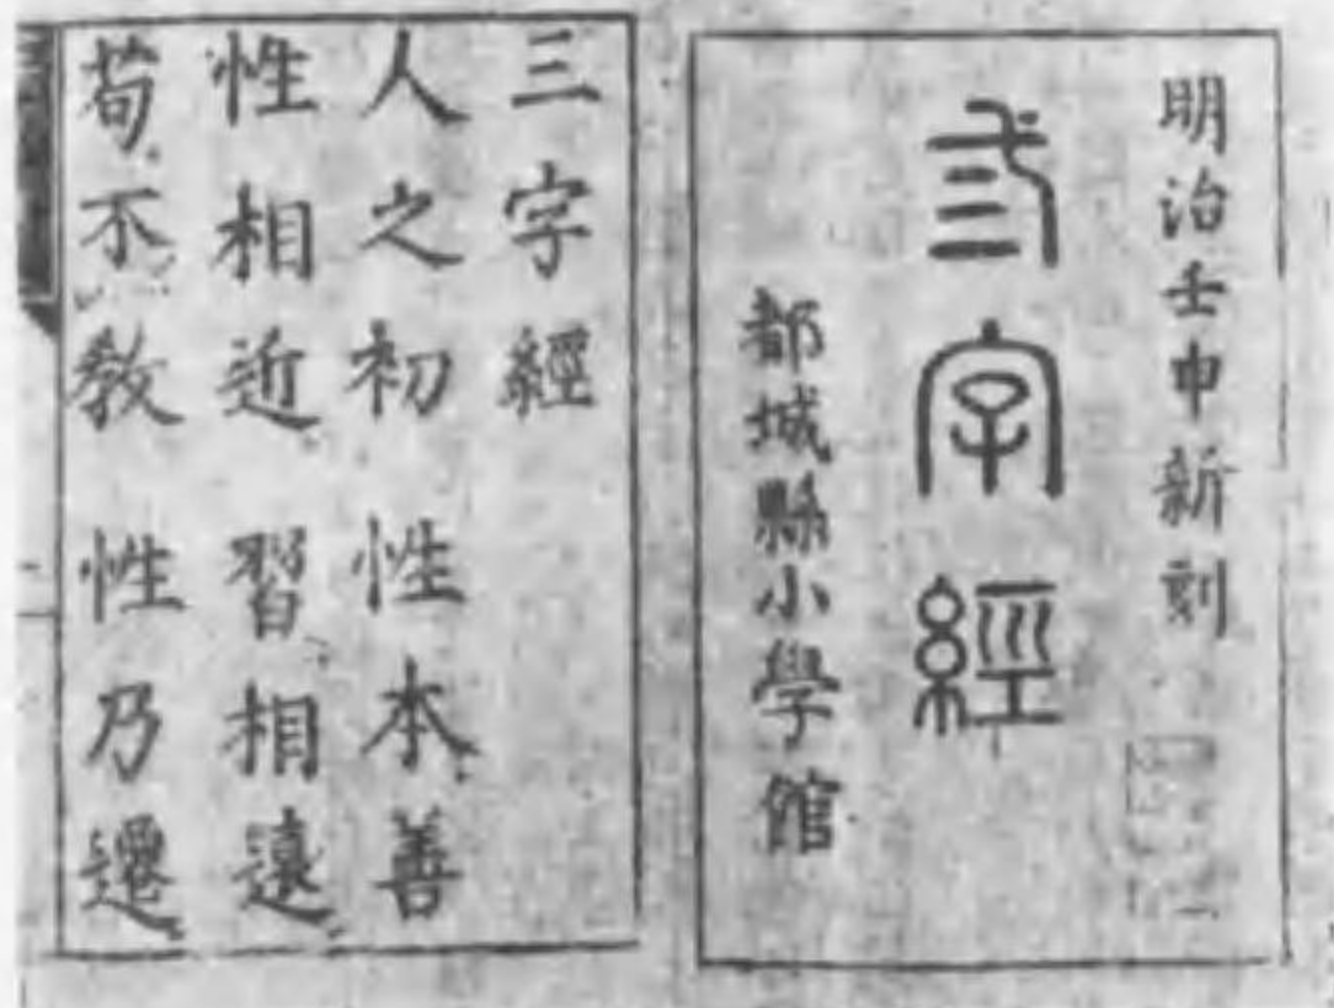 明治壬申新刻
弎字經
都城縣小學館
三字經
人之初 性本善
性相近 習相遠
苟不敎 性乃遷